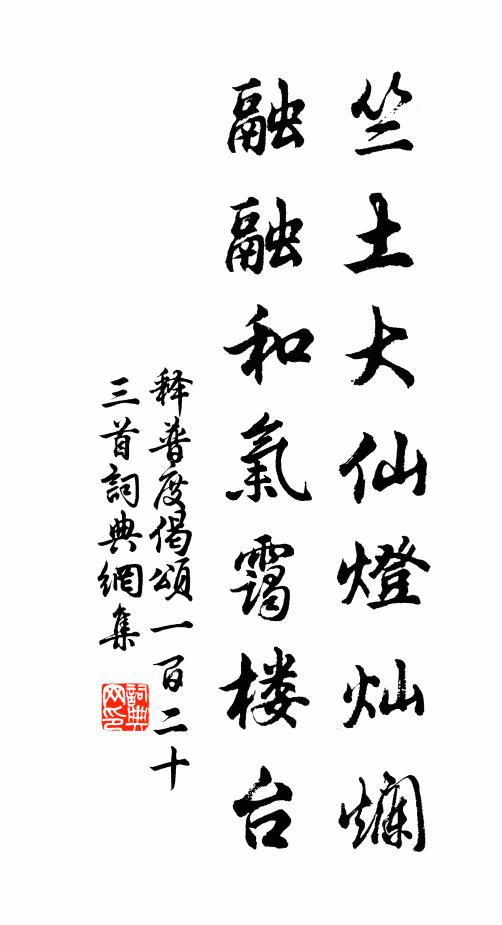 竺土大仙燈灿爛
融融和氣靄楼台
释普度偈頌一百二十
三首詞典網集
詞典网印